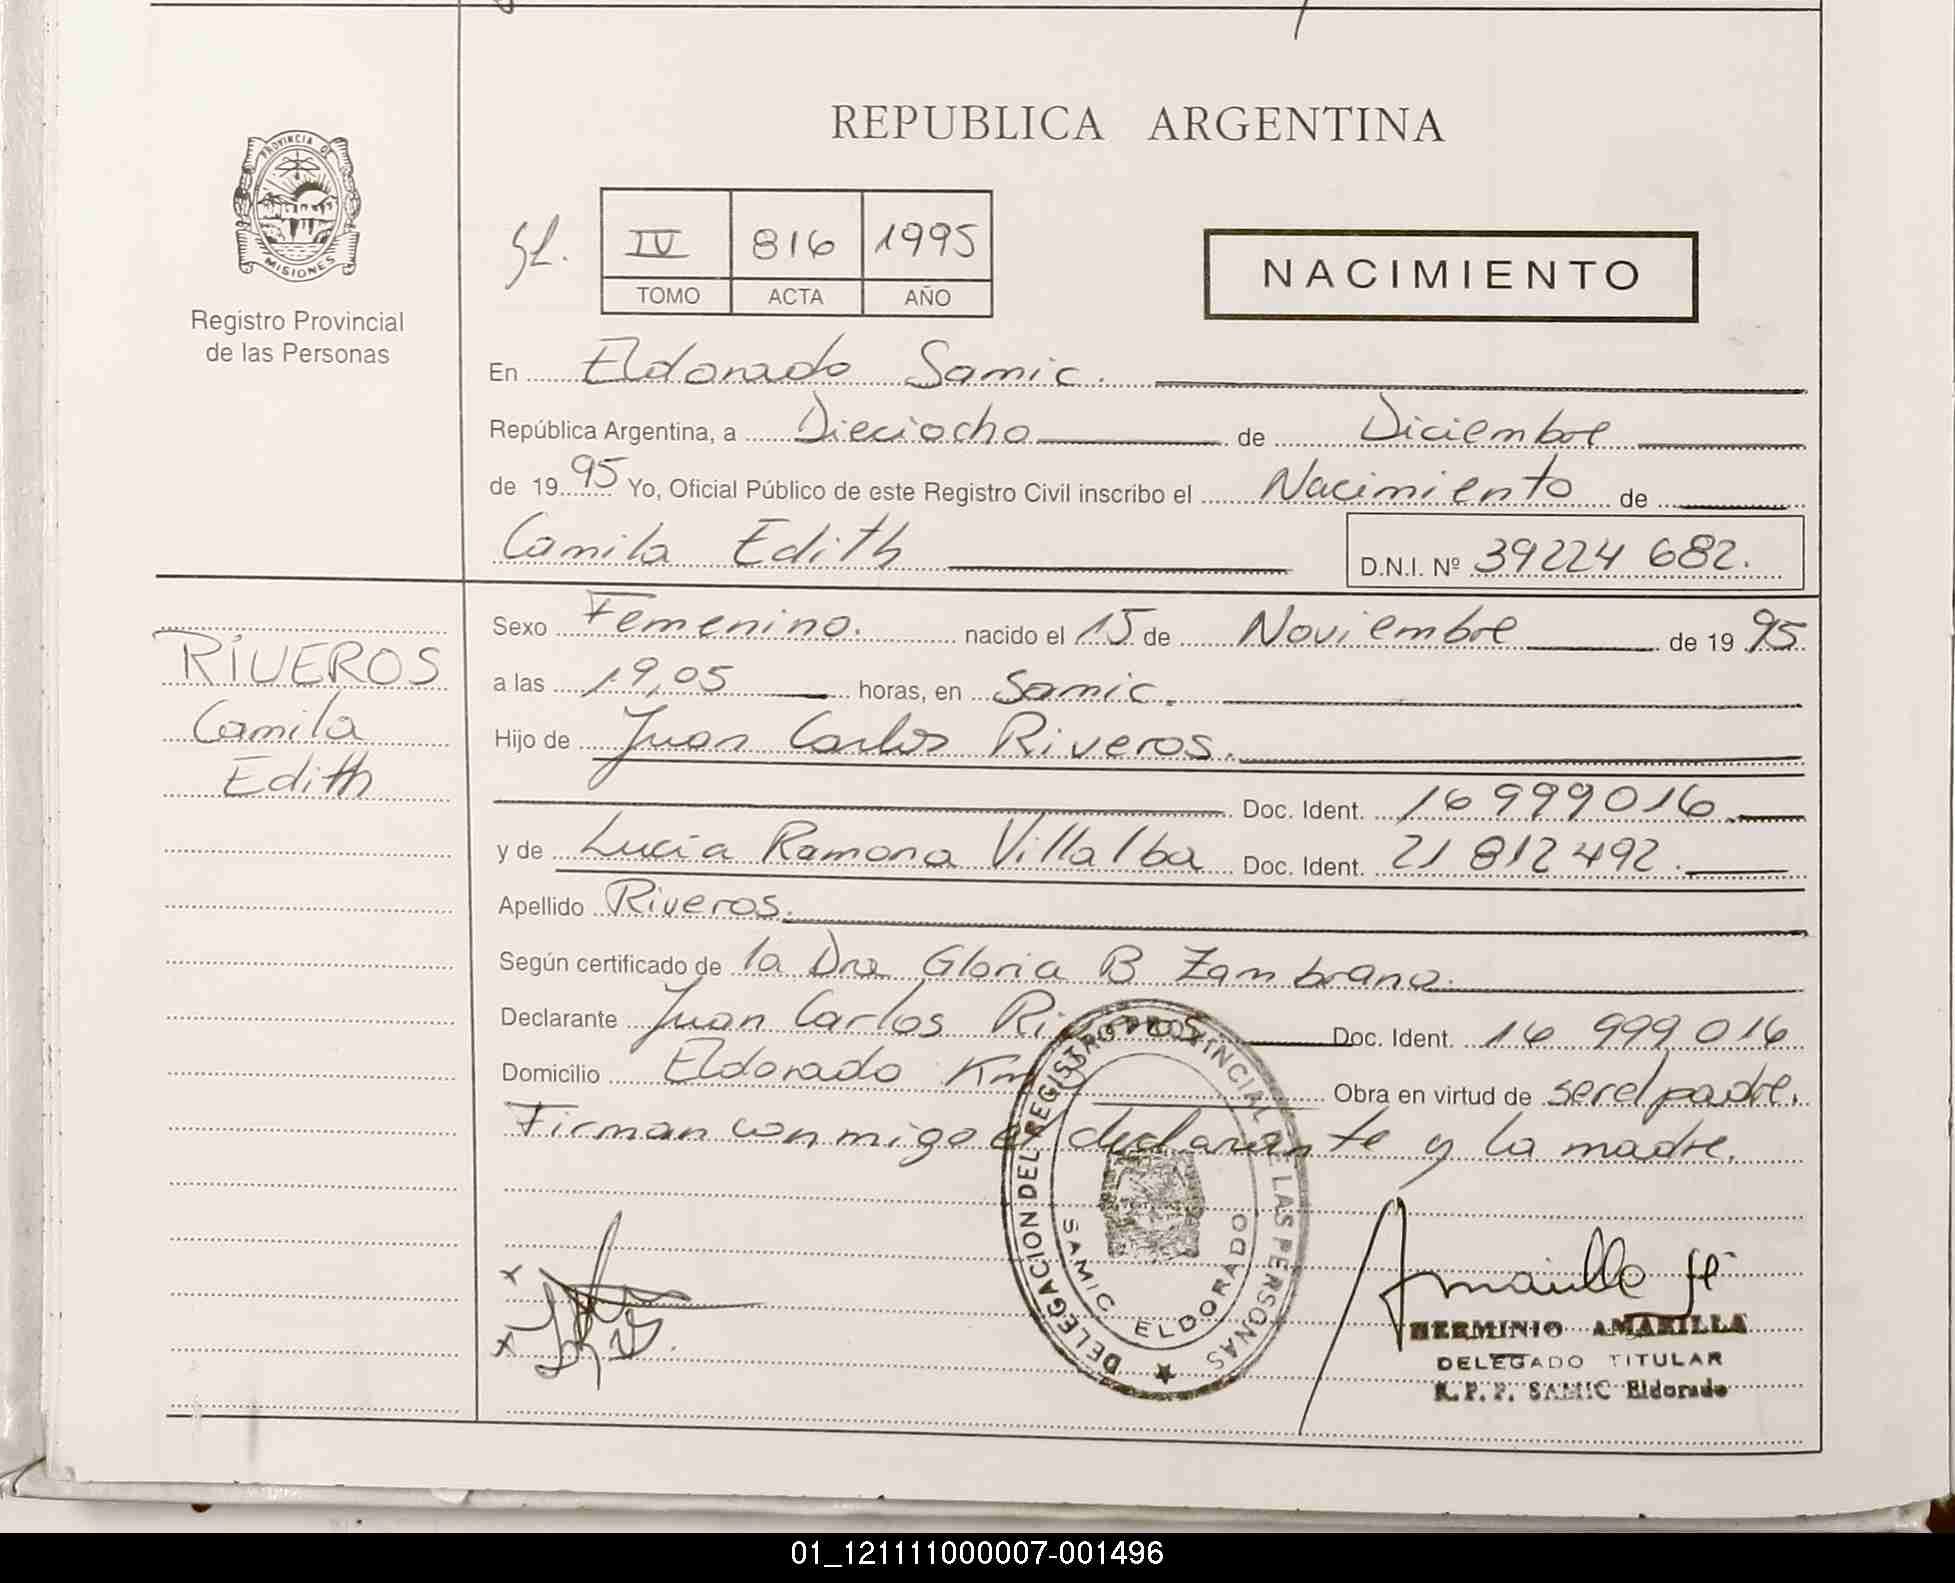 REPUBLICA ARGENTINA
PROVINCIA DE
MISIONES
Registro Provincial
de las Personas
IV 816 1995
TOMO ACTA AÑO
NACIMIENTO
En Eldorado Samic.
República Argentina, a Dieciocho de Diciembre
de 1995 Yo, Oficial Público de este Registro Civil inscribo el Nacimiento de
Camila Edith D.N.I. Nº 39224 682.
RIVEROS
Camila
Edith
Sexo Femenino. nacido el 15 de Noviembre de 1995.
a las 19,05 horas, en Samic.
Hijo de Juan Carlos Riveros.
Doc. Ident. 16 999 016.
y de Lucia Ramona Villalba Doc. Ident. 21 812 492.
Apellido Riveros.
Según certificado de la Dra Gloria B Zambrano.
Declarante Juan Carlos Riveros Doc. Ident. 16 999 016
Domicilio Eldorado Km Obra en virtud de ser el padre.
Firman conmigo el declarante y la madre.
DELEGACION DEL REGISTRO PROVINCIAL DE LAS PERSONAS
SAMIC ELDORADO
HERMINIO AMARILLA
DELEGADO TITULAR
R.P.P. SAMIC Eldorado
01_121111000007-001496